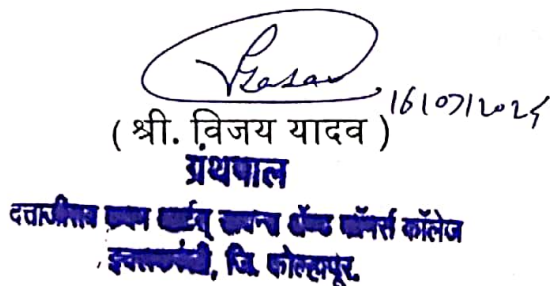 16/07/2025
( श्री. विजय यादव )
ग्रंथपाल
दत्ताजीराव कदम आर्टस् सायन्स ॲण्ड कॉमर्स कॉलेज
इचलकरंजी, जि. कोल्हापूर.